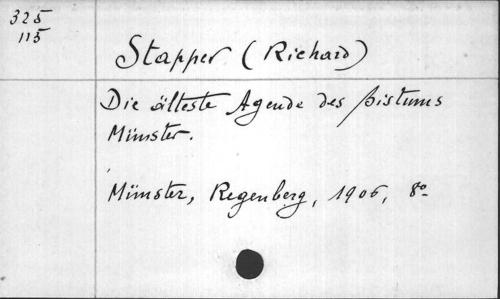 325
115
Stapper (Richard)
Die älteste Agende des Bistums
Münster.
Münster, Regensberg, 1906, 8°